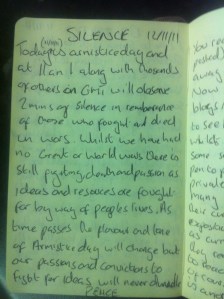 SILENCE 12/11/11
Today is armistice day and
at 11am I along with thousands
of others on GMT will observe
2 mins of silence in remembrance
of those who fought and died
in wars. Whilst we have had
no Great or World wars there is
still fighting death and passion as
ideas and resources are fought
for by way of peoples lives. As
time passes the and tone
of Armistice day will change but
our passions and convictions to
fight for ideas will never
PEACE
You rea
passed
away
Now
blogs
to see
whils
some
pen to
priva
many
their
expres
as cur
the